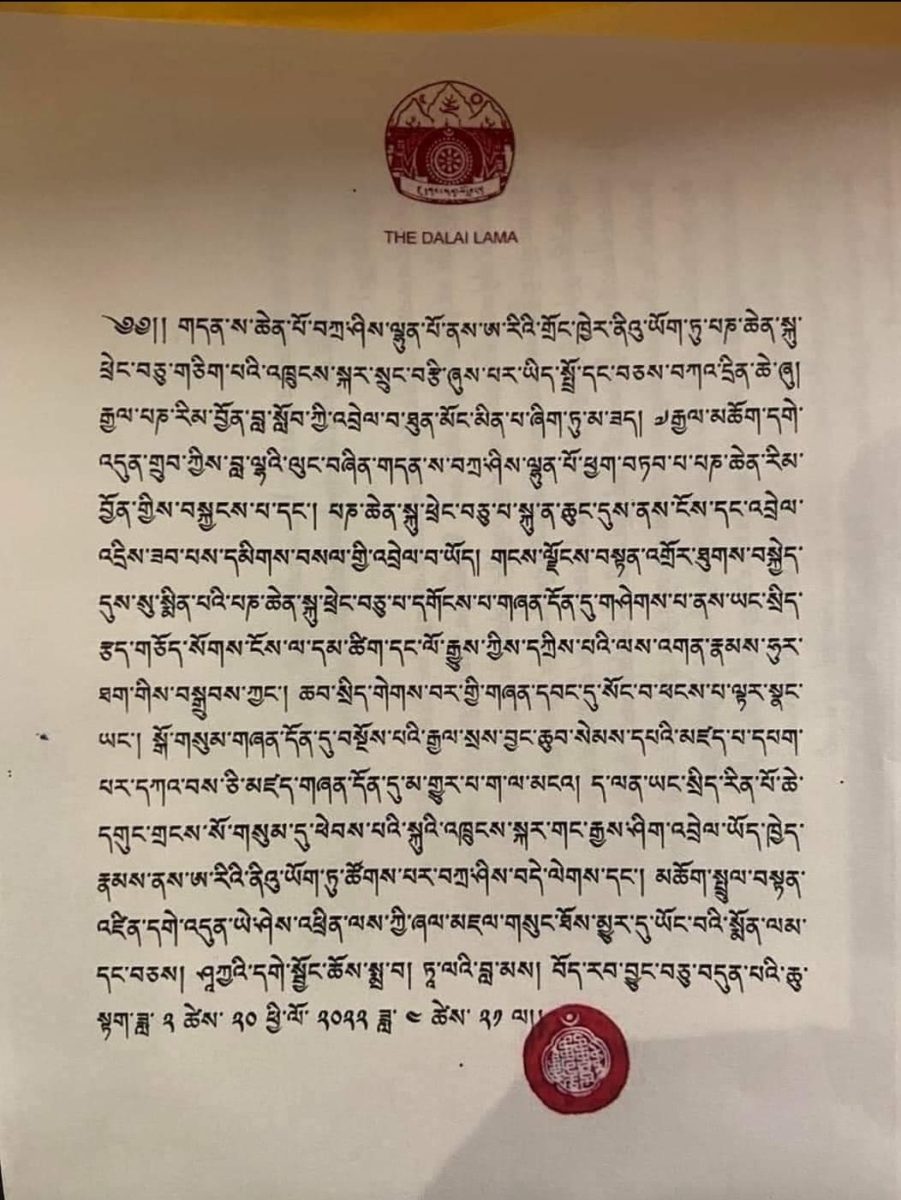 THE DALAI LAMA
༄༅།། གདན་ས་ཆེན་པོ་བཀྲ་ཤིས་ལྷུན་པོ་ནས་ཨ་རིའི་གྲོང་ཁྱེར་ནིའུ་ཡོག་ཏུ་པཎ་ཆེན་སྐུ་
ཕྲེང་བཅུ་གཅིག་པའི་འཁྲུངས་སྐར་སྲུང་བརྩི་ཞུས་པར་ཡིད་སྤྲོ་དང་བཅས་བཀའ་དྲིན་ཆེ་ཞུ།
རྒྱལ་པཎ་རིམ་བྱོན་བླ་སློབ་ཀྱི་འབྲེལ་བ་ཐུན་མོང་མིན་པ་ཞིག་ཏུ་མ་ཟད། ༧རྒྱལ་མཆོག་དགེ་
འདུན་གྲུབ་ཀྱིས་བླ་ལྷའི་ལུང་བཞིན་གདན་ས་བཀྲ་ཤིས་ལྷུན་པོ་ཕྱག་བཏབ་པ་པཎ་ཆེན་རིམ་
བྱོན་གྱིས་བསྐྱངས་པ་དང་། པཎ་ཆེན་སྐུ་ཕྲེང་བཅུ་པ་སྐུ་ན་ཆུང་དུས་ནས་ངོས་དང་འབྲེལ་
འདྲིས་ཟབ་པས་དམིགས་བསལ་གྱི་འབྲེལ་བ་ཡོད། གངས་ལྗོངས་བསྟན་འགྲོར་ཐུགས་བསྐྱེད་
དུས་སུ་སྨིན་པའི་པཎ་ཆེན་སྐུ་ཕྲེང་བཅུ་པ་དགོངས་པ་གཞན་དོན་དུ་གཤེགས་པ་ནས་ཡང་སྲིད་
རྩད་གཅོད་སོགས་ངོས་ལ་དམ་ཚིག་དང་ལོ་རྒྱུས་ཀྱིས་དཀྲིས་པའི་ལས་འགན་རྣམས་ཧུར་
ཐག་གིས་བསྒྲུབས་ཀྱང་། ཆབ་སྲིད་གེགས་བར་གྱི་གཞན་དབང་དུ་སོང་བ་ཕངས་པ་ལྟར་སྣང་
ཡང་། སྒོ་གསུམ་གཞན་དོན་དུ་བསྔོས་པའི་རྒྱལ་སྲས་བྱང་ཆུབ་སེམས་དཔའི་མཛད་པ་དཔག་
པར་དཀའ་བས་ཅི་མཛད་གཞན་དོན་དུ་མ་གྱུར་པ་ག་ལ་མངའ། ད་ལན་ཡང་སྲིད་རིན་པོ་ཆེ་
དགུང་གྲངས་སོ་གསུམ་དུ་ཕེབས་པའི་སྐུའི་འཁྲུངས་སྐར་གང་རྒྱས་ཤིག་འབྲེལ་ཡོད་ཁྱེད་
རྣམས་ནས་ཨ་རིའི་ནིའུ་ཡོག་ཏུ་ཚོགས་པར་བཀྲ་ཤིས་བདེ་ལེགས་དང་། མཆོག་སྤྲུལ་བསྟན་
འཛིན་དགེ་འདུན་ཡེ་ཤེས་འཕྲིན་ལས་ཀྱི་ཞལ་མཇལ་གསུང་ཐོས་མྱུར་དུ་ཡོང་བའི་སྨོན་ལམ་
དང་བཅས། ཤཱཀྱའི་དགེ་སྦྱོང་ཆོས་སྨྲ་བ། ཏཱ་ལའི་བླ་མས། བོད་རབ་བྱུང་བཅུ་བདུན་པའི་ཆུ་
སྟག་ཟླ་ ༢ ཚེས་ ༢༠ ཕྱི་ལོ་ ༢༠༢༢ ཟླ་ ༤ ཚེས་ ༢༡ ལ།།